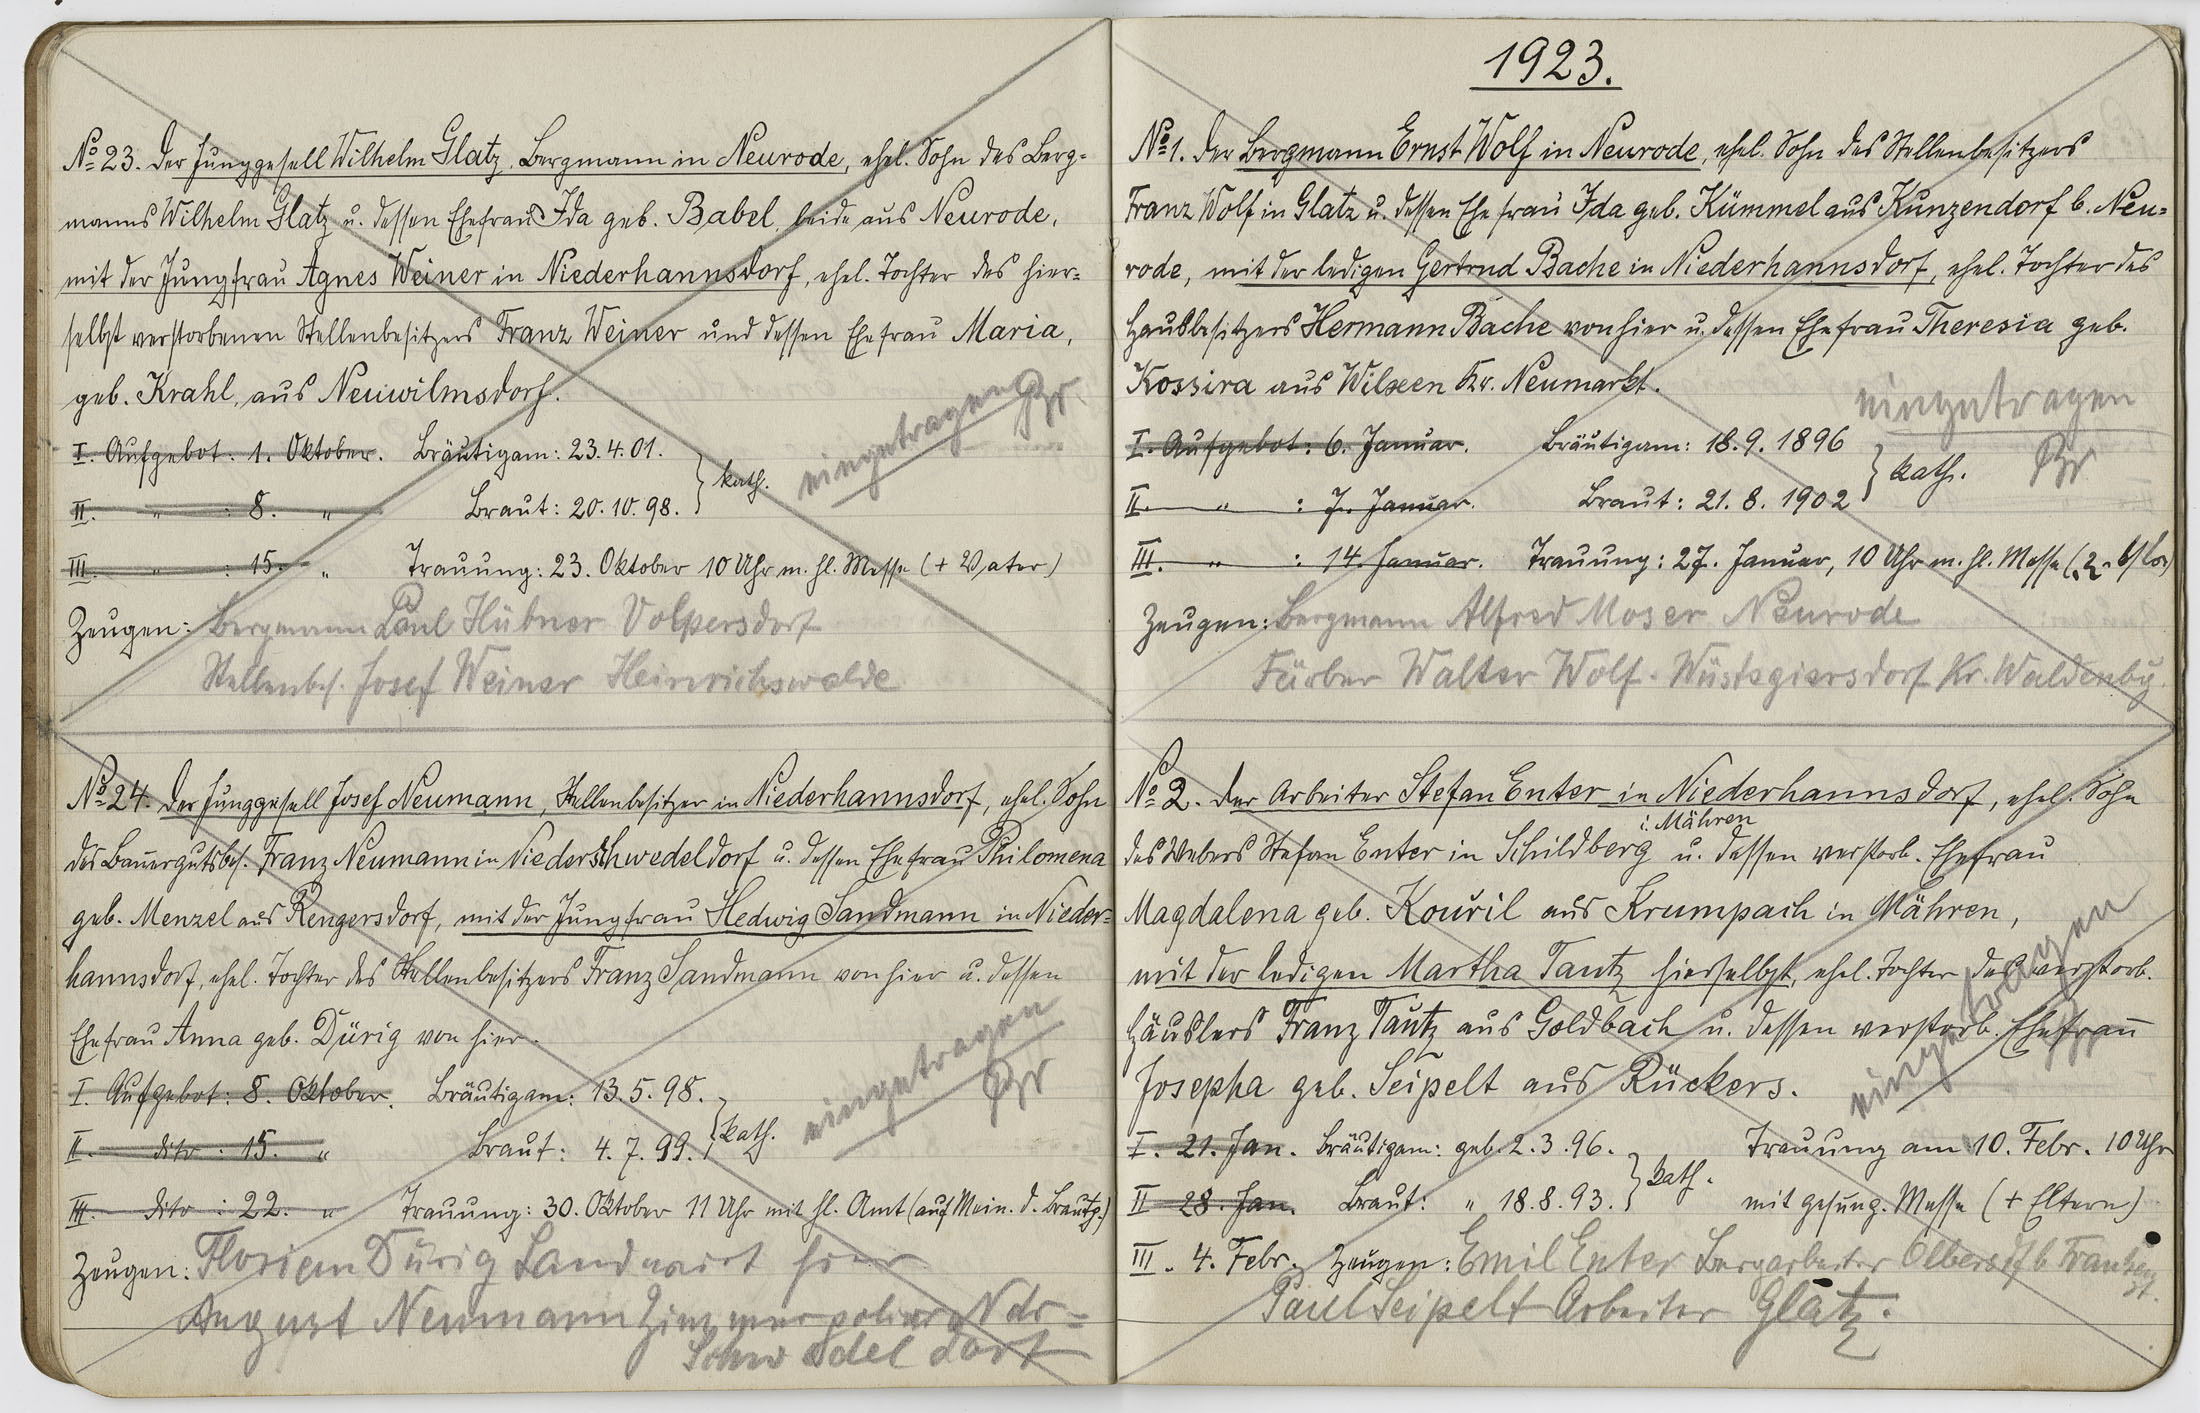 No 23. Der Junggesell Wilhelm Glatz, Bergmann in Neurode, ehel. Sohn des Berg-
manns Wilhelm Glatz u. dessen Ehefrau Ida geb. Babel, beide aus Neurode,
mit der Jungfrau Agnes Weiner in Niederhannsdorf, ehel. Tochter des hier-
selbst verstorbenen Stellenbesitzers Franz Weiner und dessen Ehefrau Maria,
geb. Krahl, aus Neuwilmsdorf.
eingetragen Br
I. Aufgebot: 1. Oktober. Bräutigam: 23.4.01.
II. " : 8. " Braut: 20.10.98. } kath.
III. " : 15. " Trauung: 23. Oktober 10 Uhr m. hl. Messe (+ Vater)
Zeugen: Bergmann Paul Hübner Volpersdorf
Stellenbes. Josef Weiner Heinrichswalde
No 24. Der Junggesell Josef Neumann, Stellenbesitzer in Niederhannsdorf, ehel. Sohn
des Bauergutsbes. Franz Neumann in Niederschwedeldorf u. dessen Ehefrau Philomena
geb. Menzel aus Rengersdorf, mit der Jungfrau Hedwig Sandmann in Nieder-
hannsdorf, ehel. Tochter des Stellenbesitzers Franz Sandmann von hier u. dessen
Ehefrau Anna geb. Dürig von hier.
eingetragen Br
I. Aufgebot: 8. Oktober. Bräutigam: 13.5.98.
II. dito : 15. " Braut: 4.7.99. } kath.
III. dito : 22. " Trauung: 30. Oktober 11 Uhr mit hl. Amt (auf Mein. d. Brautp.)
Zeugen: Florian Dürig Landwirt hier
August Neumann Zimmerpolier Ndr-
Schwedeldorf
1923.
No 1. Der Bergmann Ernst Wolf in Neurode, ehel. Sohn des Stellenbesitzers
Franz Wolf in Glatz u. dessen Ehefrau Ida geb. Kümmel aus Kunzendorf b. Neu-
rode, mit der ledigen Gertrud Bache in Niederhannsdorf, ehel. Tochter des
Hausbesitzers Hermann Bache von hier u. dessen Ehefrau Theresia geb.
Kossira aus Wilxen Kr. Neumarkt.
eingetragen
Br
I. Aufgebot: 6. Januar. Bräutigam: 18.9.1896
II. " : 7. Januar. Braut: 21.8.1902 } kath.
III. " : 14. Januar. Trauung: 27. Januar, 10 Uhr m. hl. Messe
Zeugen: Bergmann Alfred Moser Neurode
Färber Walter Wolf. Wüstegiersdorf Kr. Waldenbg.
No 2. Der Arbeiter Stefan Enter in Niederhannsdorf, ehel. Sohn
des Webers Stefan Enter in Schildberg i. Mähren u. dessen verstorb. Ehefrau
Magdalena geb. Kouřil aus Krumpach in Mähren,
mit der ledigen Martha Tautz hierselbst, ehel. Tochter des verstorb.
Häuslers Franz Tautz aus Goldbach u. dessen verstorb. Ehefrau
Josepha geb. Seipelt aus Rückers.
eingetragen
Br
I. 21. Jan. Bräutigam: geb. 2.3.96. Trauung am 10. Febr. 10 Uhr
II 28. Jan. Braut: " 18.8.93. } kath. mit gesung. Messe (+ Eltern)
III. 4. Febr. Zeugen: Emil Enter Bergarbeiter Olbersdf b
Paul Seipelt Arbeiter Glatz.